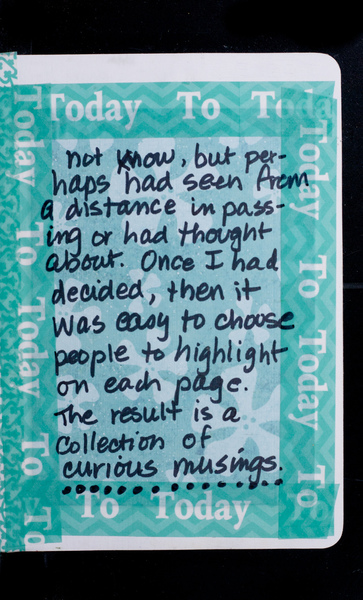 Today To Toda
not know, but per-
haps had seen from
a distance in pass-
ing or had thought
about. Once I had
decided, then it
was easy to choose
people to highlight
on each page.
The result is a
collection of
curious musings.
To Today
Today To Today To To
Today To Today To